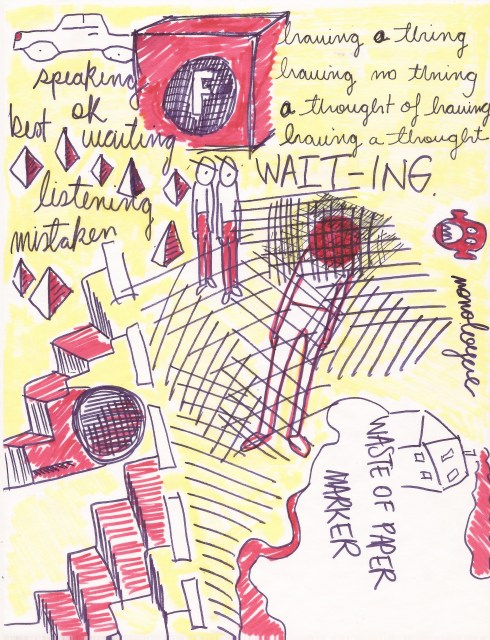 having a thing
having no thing
a thought of having
having a thought
F
speaking
ok
best waiting
listening
mistaken
WAIT-ING.
monologue
WASTE OF PAPER
MARKER